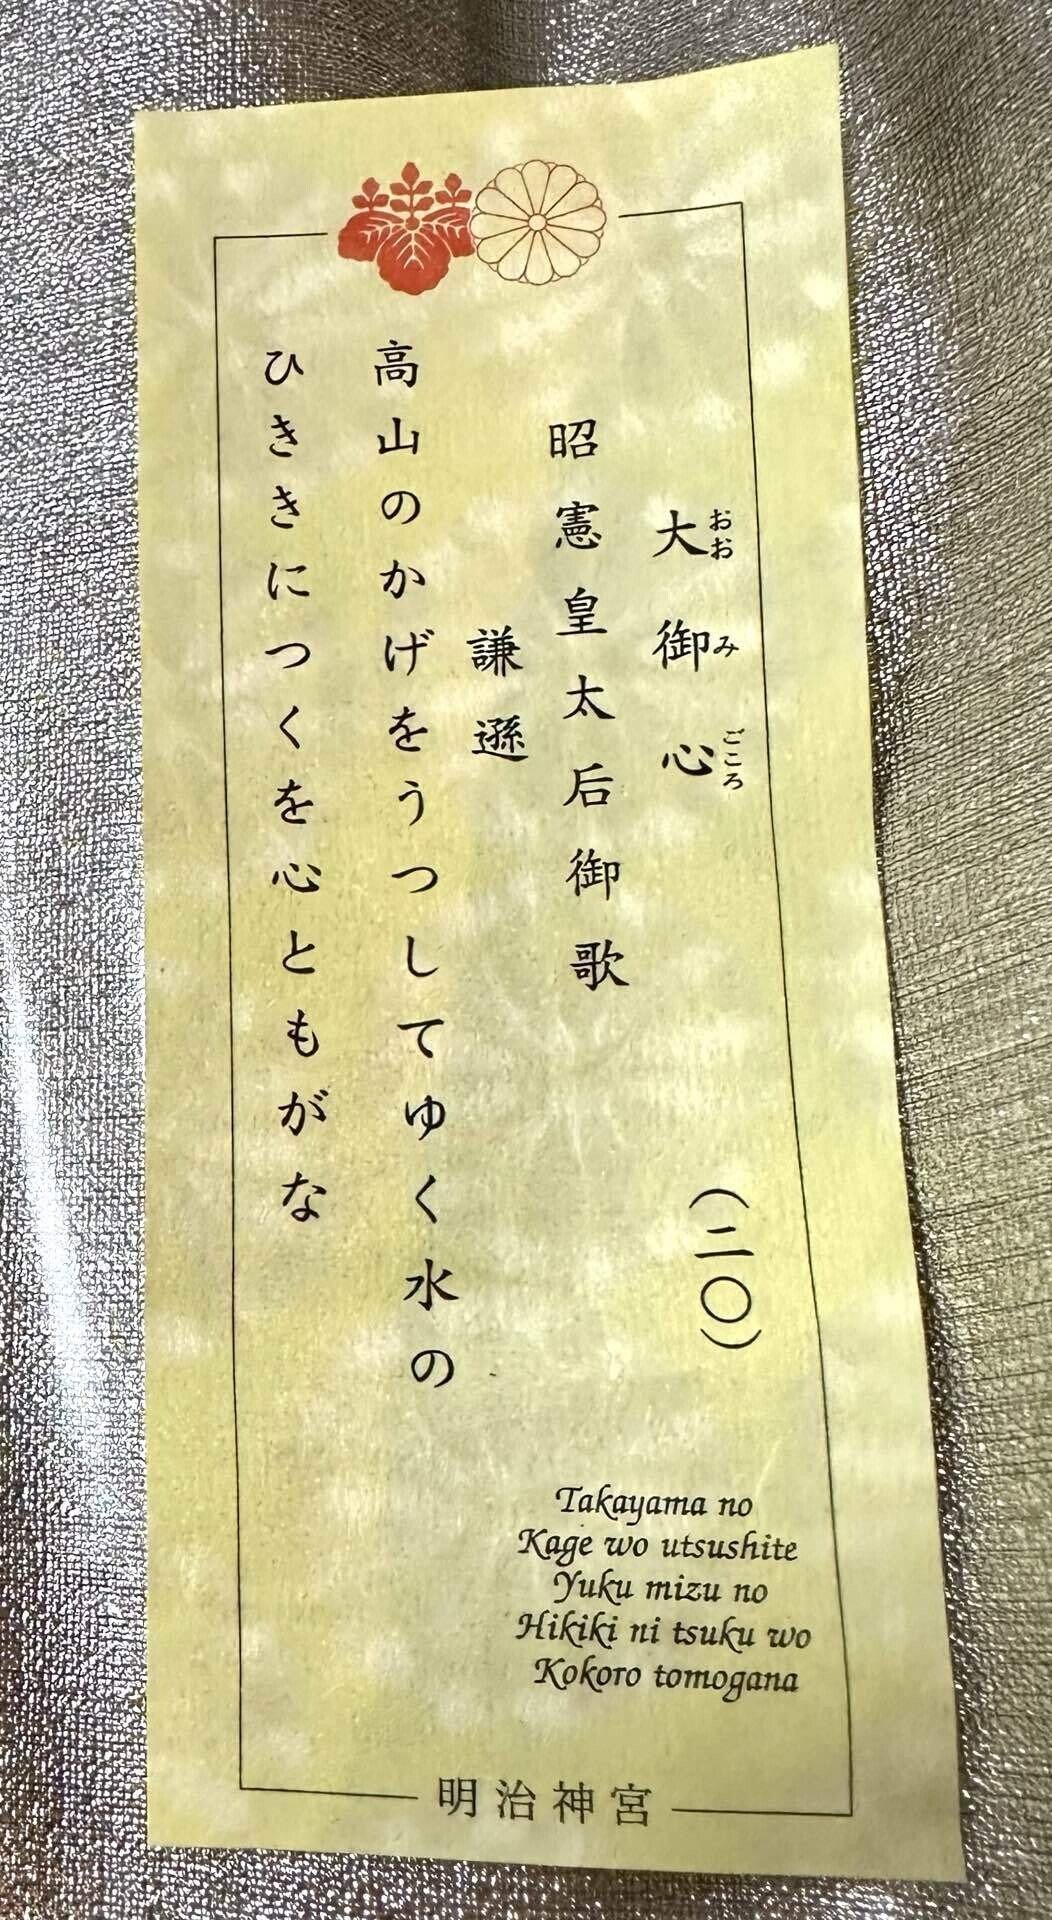 大御心 （二〇）
おおみごころ
昭憲皇太后御歌
謙遜
高山のかげをうつしてゆく水の
ひききにつくを心ともがな
Takayama no
Kage wo utsushite
Yuku mizu no
Hikiki ni tsuku wo
Kokoro tomogana
明治神宮